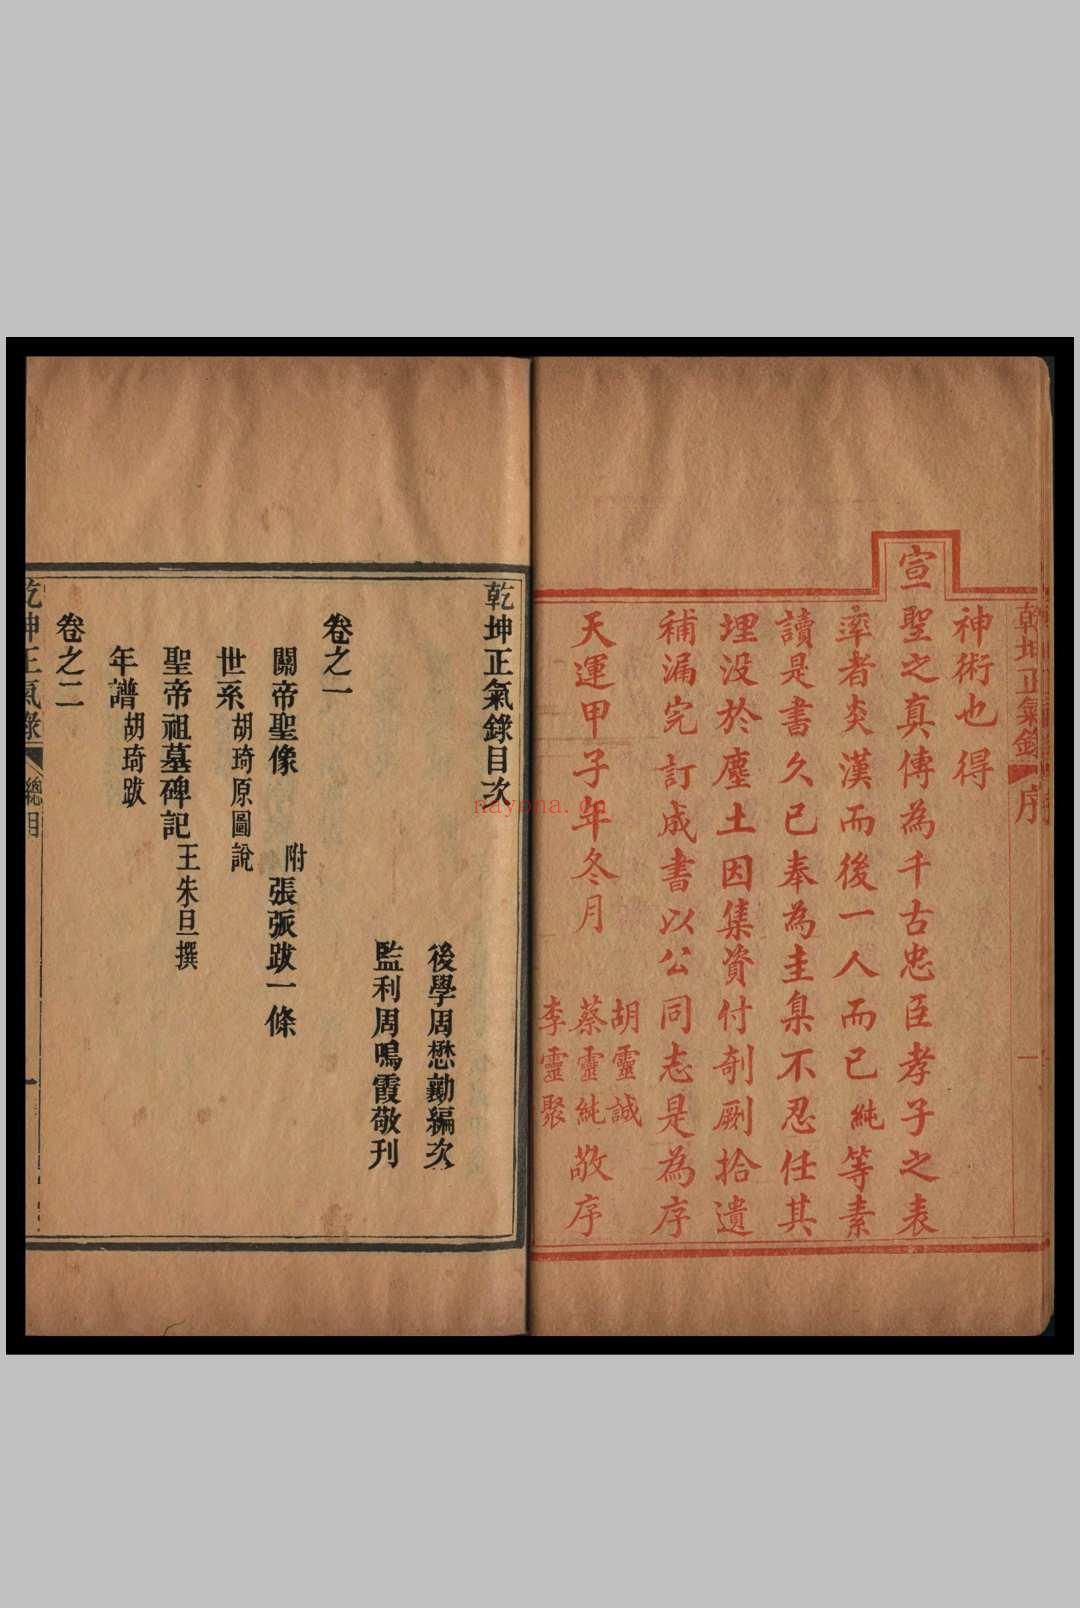 乾坤正氣錄 序 一
神術也得
宣聖之真傳為千古忠臣孝子之表
率者炎漢而後一人而已純等素
讀是書久已奉為圭臬不忍任其
埋没於塵土因集資付剞劂拾遺
補漏完訂成書以公同志是為序
天運甲子年冬月
胡靈誠
蔡靈純敬序
李靈聚
乾坤正氣錄目次
後學周懋勷編次
監利周鳴霞敬刊
卷之一
關帝聖像 附張派跋一條
世系 胡琦原圖說
聖帝祖墓碑記 王朱旦撰
年譜 胡琦跋
卷之二
乾坤正氣錄 總目 一
nayona.cn